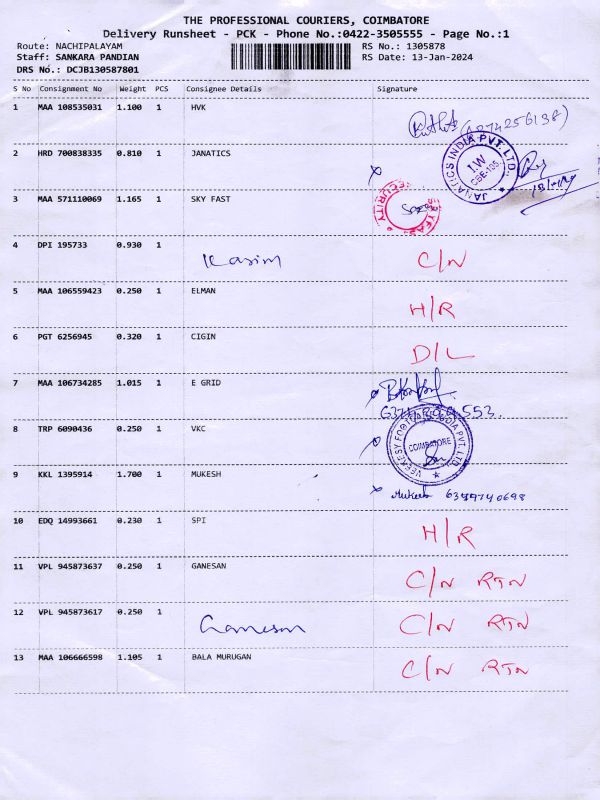 THE PROFESSIONAL COURIERS, COIMBATORE
Delivery Runsheet - PCK - Phone No.:0422-3505555 - Page No.:1
Route: NACHIPALAYAM RS No.: 1305878
Staff: SANKARA PANDIAN RS Date: 13-Jan-2024
DRS No.: DCJB130587801
S No Consignment No Weight PCS Consignee Details Signature
1 MAA 108535031 1.100 1 HVK
2 HRD 700838335 0.810 1 JANATICS
JANATICS INDIA PVT. LTD.
I.W
CBE-105
3 MAA 571110069 1.165 1 SKY FAST
4 DPI 195733 0.930 1
Kasim C/N
5 MAA 106559423 0.250 1 ELMAN
H/R
6 PGT 6256945 0.320 1 CIGIN
D/L
7 MAA 106734285 1.015 1 E GRID
8 TRP 6090436 0.250 1 VKC
COIMBATORE
9 KKL 1395914 1.700 1 MUKESH
Mukesh
10 EDQ 14993661 0.230 1 SPI
H/R
11 VPL 945873637 0.250 1 GANESAN
C/N RTN
12 VPL 945873617 0.250 1
Ganesan C/N RTN
13 MAA 106666598 1.105 1 BALA MURUGAN
C/N RTN